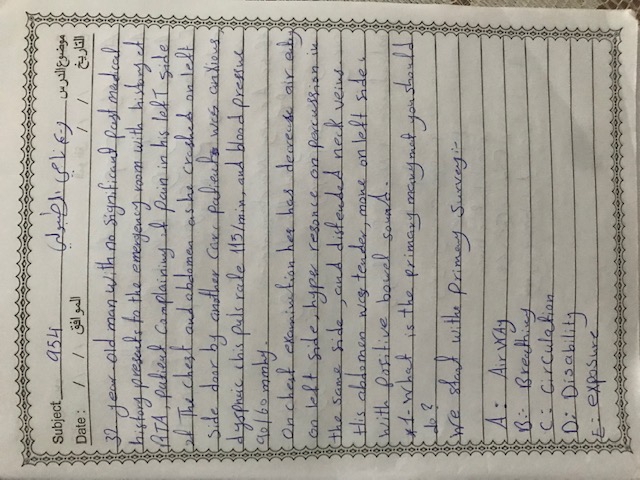 Subject 954 موضوع الدرس
Date: / / الموافق / / التاريخ
32 year old man with no significant past medical
history presents to the emergency room with history of
RTA patient complaining of pain in his left side
of the chest and abdomen as he crashed on left
side door by another car. patient was anxious
dyspnic his puls rate 115/min and blood pressue
90/60 mmHg.
On chest examination he has decrease air
on left side, hyper resonce on percussion in
the same side, and distended neck veins.
His abdomen was tender, more on left side
with positive bowel sound.
1- What is the primary you should
do?
We start withe primary survey:-
A: AirWay
B:- Breathing
C: Circulation
D: Disability
E- exposure